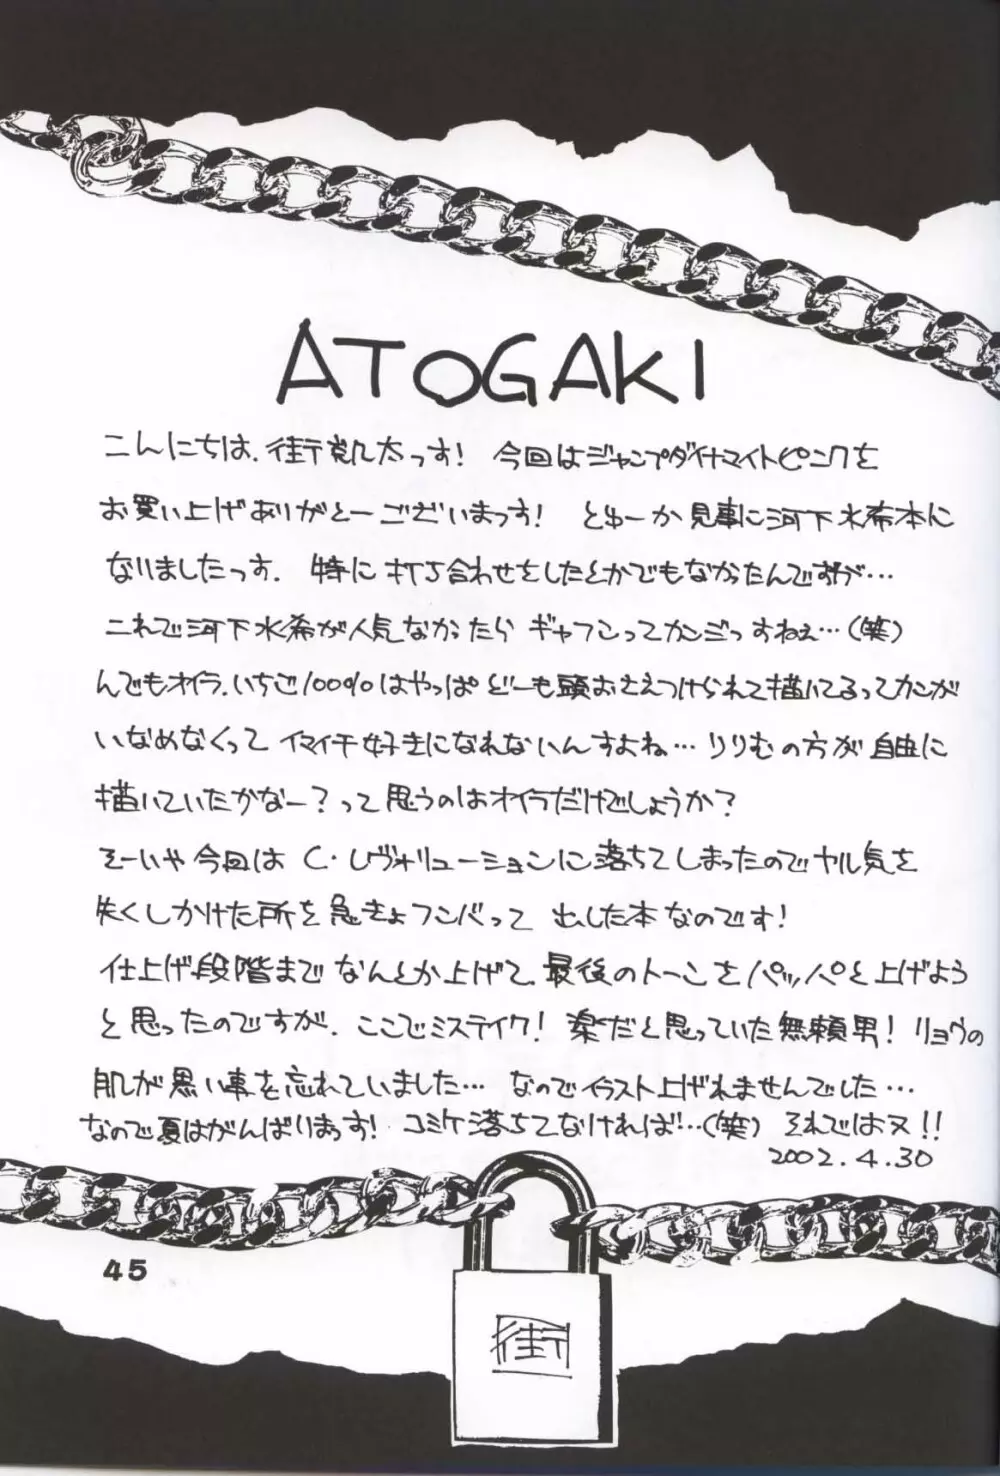 ATOGAKI
こんにちは、街凱太っす! 今回はジャンプダイナマイトピンクを
お買い上げありがとーございまっす! とゆーか見事に河下水希本に
なりましたっす. 特に打ち合わせをしたとかでもなかったんですが…
これで河下水希が人気なかったらギャフンってカンジっすねぇ…(笑)
んでもオイラ、いちご100%はやっぱどーも頭おさえつけられて描いてるってカンが
いなめなくってイマイチ好きになれないんすよね… りりむの方が自由に
描いていたかなー?って思うのはオイラだけでしょうか?
そーいや今回はC・レヴォリューションに落ちてしまったのでヤル気を
失くしかけた所を急きょフンバって出した本なのです!
仕上げ段階までなんとか上げて、最後のトーンをパッパと上げよう
と思ったのですが、ここでミステイク! 楽だと思っていた無頼男! リョウの
肌が黒い事を忘れていました… なのでイラスト上げれませんでした…
なので夏はがんばりまっす! コミケ落ちてなければ!…(笑) それではヌ!!
2002.4.30
街
45